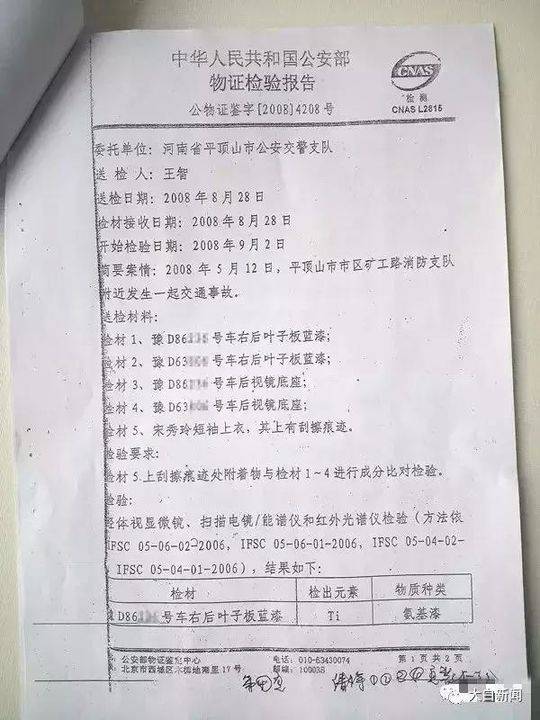 中华人民共和国公安部
物证检验报告
公物证鉴字[2008]4208号
CNAS
检测
CNAS L2815
委托单位：河南省平顶山市公安交警支队
送 检 人：王智
送检日期：2008 年 8 月 28 日
检材接收日期：2008 年 8 月 28 日
开始检验日期：2008 年 9 月 2 日
简要案情：2008 年 5 月 12 日，平顶山市市区矿工路消防支队
附近发生一起交通事故。
送检材料：
检材 1、豫 D86 号车右后叶子板蓝漆；
检材 2、豫 D63 号车右后叶子板蓝漆；
检材 3、豫 D86 号车后视镜底座；
检材 4、豫 D63 号车后视镜底座；
检材 5、宋秀玲短袖上衣，其上有刮擦痕迹。
检验要求：
检材 5 上刮擦痕迹处附着物与检材 1～4 进行成分比对检验。
检验：
经体视显微镜、扫描电镜/能谱仪和红外光谱仪检验（方法依
IFSC 05-06-02-2006, IFSC 05-06-01-2006, IFSC 05-04-02-
IFSC 05-04-01-2006），结果如下：
检材 检出元素 物质种类
D86 号车右后叶子板蓝漆 Ti 氨基漆
公安部物证鉴定中心 电话：010-63430074 第 1 页 共 2 页
北京市西城区木樨地南里 17 号 邮编：100038
大白新闻